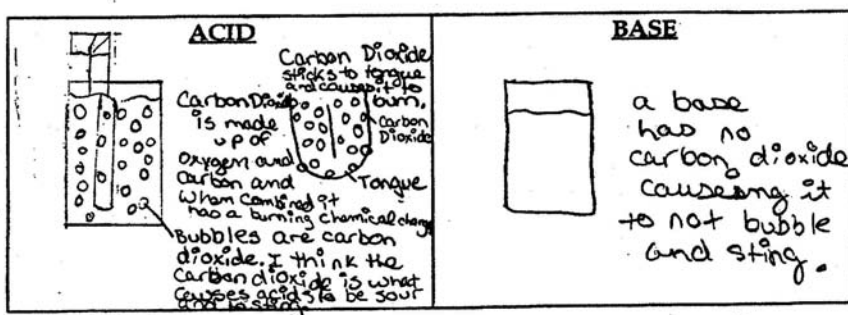 ACID
Carbon Dioxide
sticks to tongue
and causes it to
burn.
Carbon
Dioxide
Tongue
Carbon Dioxide
is made
up of
oxygen and
Carbon and
when combined it
has a burning chemical change
Bubbles are carbon
dioxide. I think the
carbon dioxide is what
causes acids to be sour
and to sting.
BASE
a base
has no
carbon dioxide
causeing it
to not bubble
and sting.